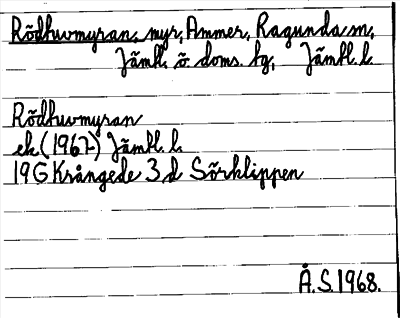 Rödhuvmyran, myr, Ammer, Ragunda sn,
Jämtl. ö doms. tg, Jämtl. l.
Rödhuvmyran
ek (1967) Jämtl. l.
19G Krångede 3 d Sörklippen
Å.S. 1968.